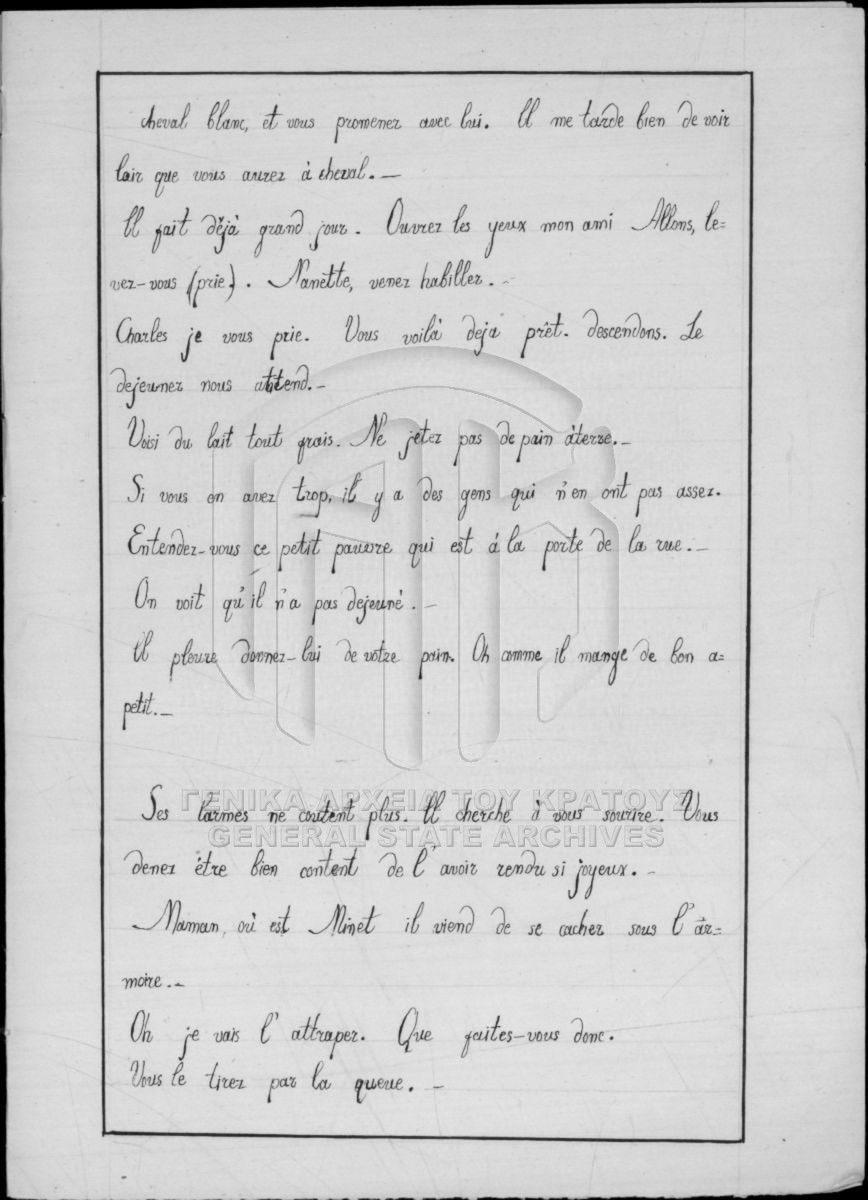 cheval blanc, et vous promener avec lui. Il me tarde bien de voir
lair que vous aurez à cheval. —
Il fait déjà grand jour. Ouvrez les yeux mon ami Allons, le=
vez-vous (prie). Nanette, venez habiller. -
Charles je vous prie. Vous voilà deja prêt. descendons. Le
dejeuner nous attend. -
Voisi du lait tout frais. Ne jetez pas de pain àterre. -
Si vous en avez trop, il y a des gens qui n'en ont pas assez.
Entendez-vous ce petit pauvre qui est à la porte de la rue. -
On voit qu'il n'a pas dejeuné. -
Il pleure donnez-lui de votre pain. Oh comme il mange de bon a=
petit. -
ΓΕΝΙΚΑ ΑΡΧΕΙΑ ΤΟΥ ΚΡΑΤΟΥΣ
Ses larmes ne coutent plus. Il cherche à vous sourire. Vous
GENERAL STATE ARCHIVES
denez être bien content de l'avoir rendu si joyeux. -
Maman, où est Minet il viend de se cacher sous l'ar=
moire. -
Oh je vais l'attraper. Que faites-vous donc.
Vous le tirez par la queue. -